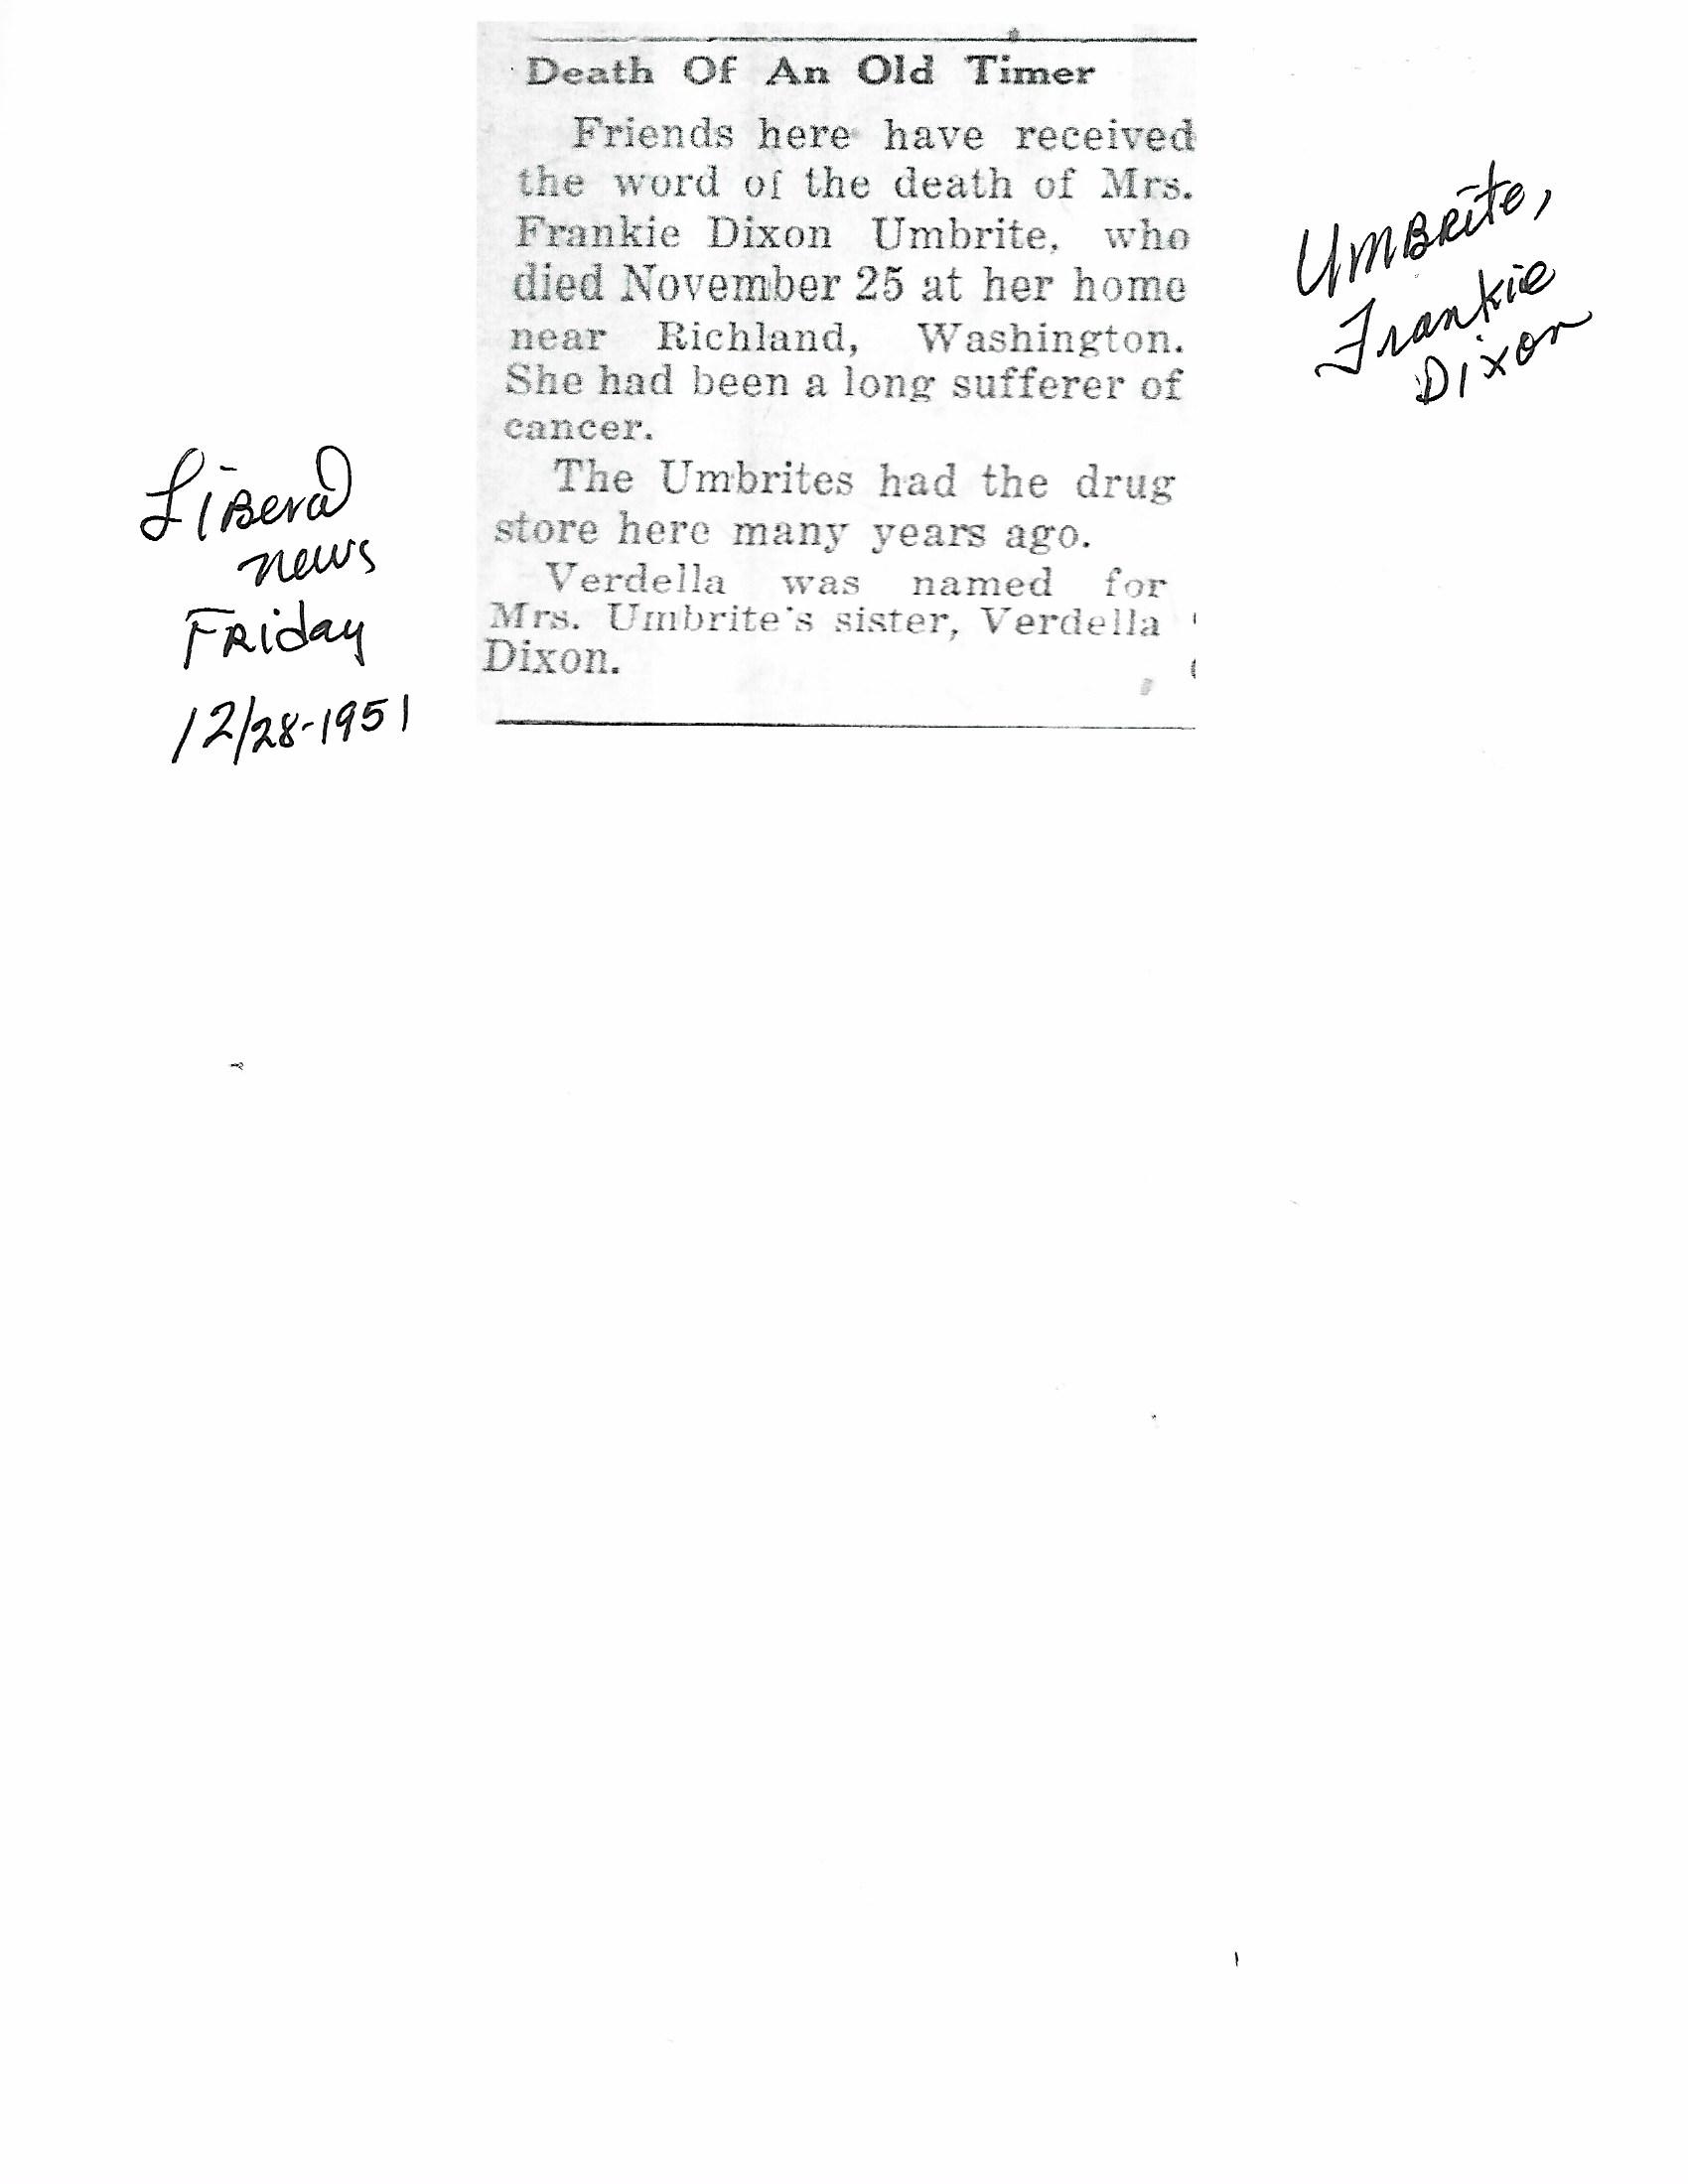 Death Of An Old Timer
Friends here have received
the word of the death of Mrs.
Frankie Dixon Umbrite, who
died November 25 at her home
near Richland, Washington.
She had been a long sufferer of
cancer.
The Umbrites had the drug
store here many years ago.
Verdella was named for
Mrs. Umbrite's sister, Verdella
Dixon.
Umbrite,
Frankie
Dixon
Liberal
news
Friday
12/28-1951